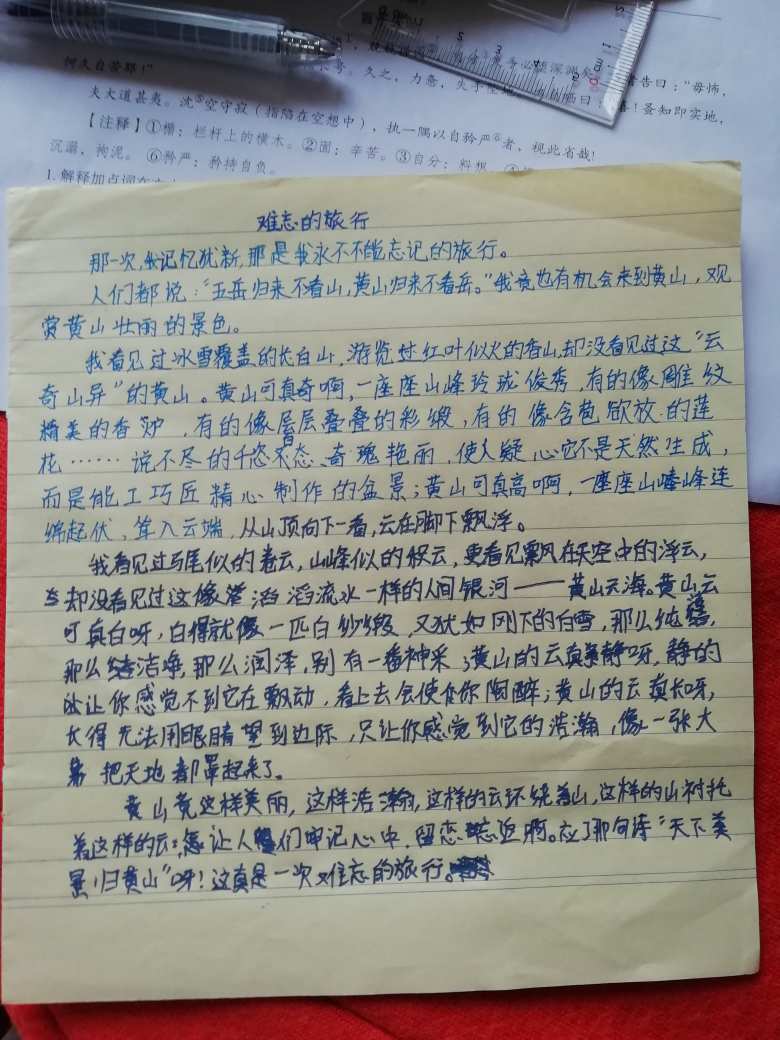 何久自苦耶！"
久之，力惫，失手
告曰："毋怖，
夫大道甚夷。沈⑤空守寂（指陷在空想中），执一隅以自矜严⑥者，视此省哉！
蚤知即实地，
【注释】①楯：栏杆上的横木。②面：辛苦。③自分：料想。
沉溺，拘泥。 ⑥矜严：矜持自负。
1.解释加点词在
难忘的旅行
那一次，我记忆犹新，那是我永不不能忘记的旅行。
人们都说："五岳归来不看山，黄山归来不看岳。"我竟也有机会来到黄山，观
赏黄山壮丽的景色。
我看见过冰雪覆盖的长白山，游览过红叶似火的香山，却没看见过这"云
奇山异"的黄山。黄山可真奇啊，一座座山峰玲珑俊秀，有的像雕纹
精美的香炉，有的像层层叠叠的彩缎，有的像含苞欲放的莲
花……说不尽的千姿百态、奇瑰艳丽，使人疑心它不是天然生成，
而是能工巧匠精心制作的盆景；黄山可真高啊，一座座山峰连
绵起伏，耸入云端，从山顶向下一看，云在脚下飘浮。
我看见过马尾似的卷云，山峰似的积云，更看见飘在天空中的浮云，
却没看见过这像滔滔流水一样的人间银河——黄山云海。黄山云
可真白呀，白得就像一匹白纱缎，又犹如刚下的白雪，那么纯洁，
那么洁净，那么润泽，别有一番神采；黄山的云真静呀，静的
让你感觉不到它在飘动，看上去会使你陶醉；黄山的云真长呀，
长得无法用眼睛望到边际，只让你感觉到它的浩瀚，像一张大
把天地都罩起来了。
黄山竟这样美丽，这样浩瀚，这样的云环绕着山，这样的山衬托
着这样的云，怎让人们牢记心中，留恋忘返啊。应了那句诗"天下美
景归黄山"呀！这真是一次难忘的旅行。